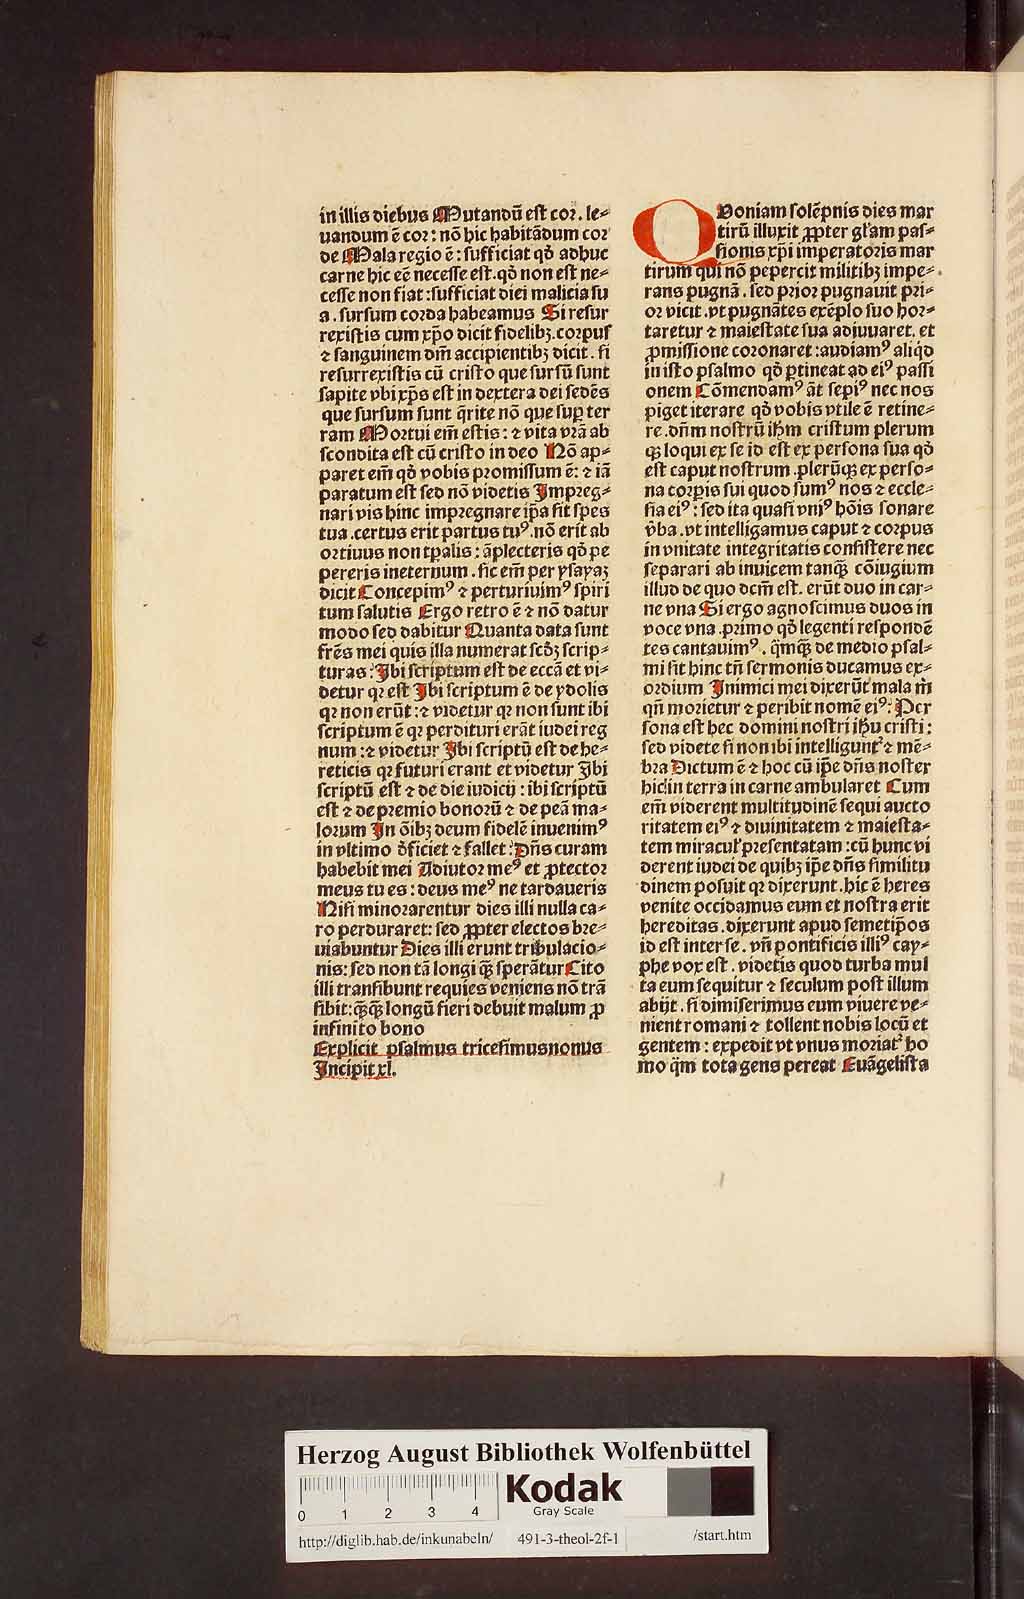 in illis diebus Mutandū est cor. le⸗
uandum ē cor: nō hic habitādum cor
de Mala regio ē: sufficiat qď adhuc
carne hic eē necesse est. qď non est ne⸗
cesse non fiat: sufficiat diei malicia su
a. sursum corda habeamus Si resur
rexistis cum xp̄o dicit fidelibꝫ. corpus
⁊ sanguinem dn̄i accipientibꝫ dicit. si
resurrexistis cū cristo que sursū sunt
sapite vbi xp̄s est in dextera dei sedēs
que sursum sunt q̄rite nō que sup ter
ram Mortui em̄ estis: ⁊ vita vr̄a ab
scondita est cū cristo in deo Nō ap⸗
paret em̄ qď vobis promissum ē: ⁊ iā
paratum est sed nō videtis Impreg⸗
nari vis hinc impregnare ip̄a sit spes
tua. certus erit partus tuꝰ. nō erit ab
ortiuus non tp̄alis: āplecteris qď pe
pereris ineternum. sic em̄ per ysayaꝫ
dicit Concepimꝰ ⁊ perturiuimꝰ spiri
tum salutis Ergo retro ē ⁊ nō datur
modo sed dabitur Quanta data sunt
fr̄es mei quis illa numerat scďꝫ scrip⸗
turas: Ibi scriptum est de ecc̄a et vi⸗
detur qꝛ est Ibi scriptum ē de ydolis
qꝛ non erūt: ⁊ videtur qꝛ non sunt ibi
scriptum ē qꝛ perdituri erāt iudei reg
num: ⁊ videtur Ibi scriptū est de he⸗
reticis qꝛ futuri erant et videtur Ibi
scriptū est ⁊ de die iudicij: ibi scriptū
est ⁊ de premio bonorū ⁊ de peā ma⸗
lorum In ōibꝫ deum fidelē inuenimꝰ
in vltimo ďficiet ⁊ fallet: Dn̄s curam
habebit mei Adiutor meꝰ et ꝓtector
meus tu es: deus meꝰ ne tardaueris
Nisi minorarentur dies illi nulla ca⸗
ro perduraret: sed ꝓpter electos bre⸗
uiabuntur Dies illi erunt tribulacio⸗
nis: sed non tā longi qꝫ̄ sperātur Cito
illi transibunt requies veniens nō trā
sibit: qꝫ̄qꝫ̄ longū fieri debuit malum ꝓ
infinito bono
Explicit psalmus tricesimusnonus
Incipit xl.
QVoniam solēpnis dies mar
tirū illuxit ꝓpter gl'am pas⸗
sionis xp̄i imperatoris mar
tirum qui nō pepercit militibꝫ impe⸗
rans pugnā. sed prior pugnauit pri⸗
or vicit. vt pugnātes exēplo suo hor⸗
taretur ⁊ maiestate sua adiuuaret. et
ꝓmissione coronaret: audiamꝰ aliqď
in isto psalmo qď ꝑtineat ad eiꝰ passi
onem Cōmendamꝰ āt sepiꝰ nec nos
piget iterare qď vobis vtile ē retine⸗
re. dn̄m nostrū ih̄m cristum plerum
qꝫ loqui ex se id est ex persona sua qď
est caput nostrum. plerūqꝫ ex perso⸗
na corꝑis sui quod sumꝰ nos ⁊ eccle⸗
sia eiꝰ: sed ita quasi vniꝰ hōis sonare
v̄ba. vt intelligamus caput ⁊ corpus
in vnitate integritatis consistere nec
separari ab inuicem tanqꝫ̄ cōiugium
illud de quo dcm̄ est. erūt duo in car⸗
ne vna Si ergo agnoscimus duos in
voce vna. primo qď legenti respondē
tes cantauimꝰ. qm̄qꝫ̄ de medio psal⸗
mi sit hinc tn̄ sermonis ducamus ex⸗
ordium Inimici mei dixerūt mala m̄
qn̄ morietur ⁊ peribit nomē eiꝰ: Per
sona est hec domini nostri ih̄u cristi:
sed videte si non ibi intelligunt᷑ ⁊ mē⸗
bra Dictum ē ⁊ hoc cū ip̄e dn̄s noster
hic in terra in carne ambularet Cum
em̄ viderent multitudinē sequi aucto
ritatem eiꝰ ⁊ diuinitatem ⁊ maiesta⸗
tem miracul' presentatam: cū hunc vi
derent iudei de quibꝫ ip̄e dn̄s similitu
dinem posuit qꝛ dixerunt. hic ē heres
venite occidamus eum et nostra erit
hereditas. dixerunt apud semetip̄os
id est inter se. vn̄ pontificis illiꝰ cay⸗
phe vox est. videtis quod turba mul
ta eum sequitur ⁊ seculum post illum
abijt. si dimiserimus eum viuere ve⸗
nient romani ⁊ tollent nobis locū et
gentem: expedit vt vnus moriat᷑ ho
mo qm̄ tota gens pereat Euāgelista
Herzog August Bibliothek Wolfenbüttel
0 1 2 3 4
Kodak
Gray Scale
http://diglib.hab.de/inkunabeln/ 491-3-theol-2f-1 /start.htm